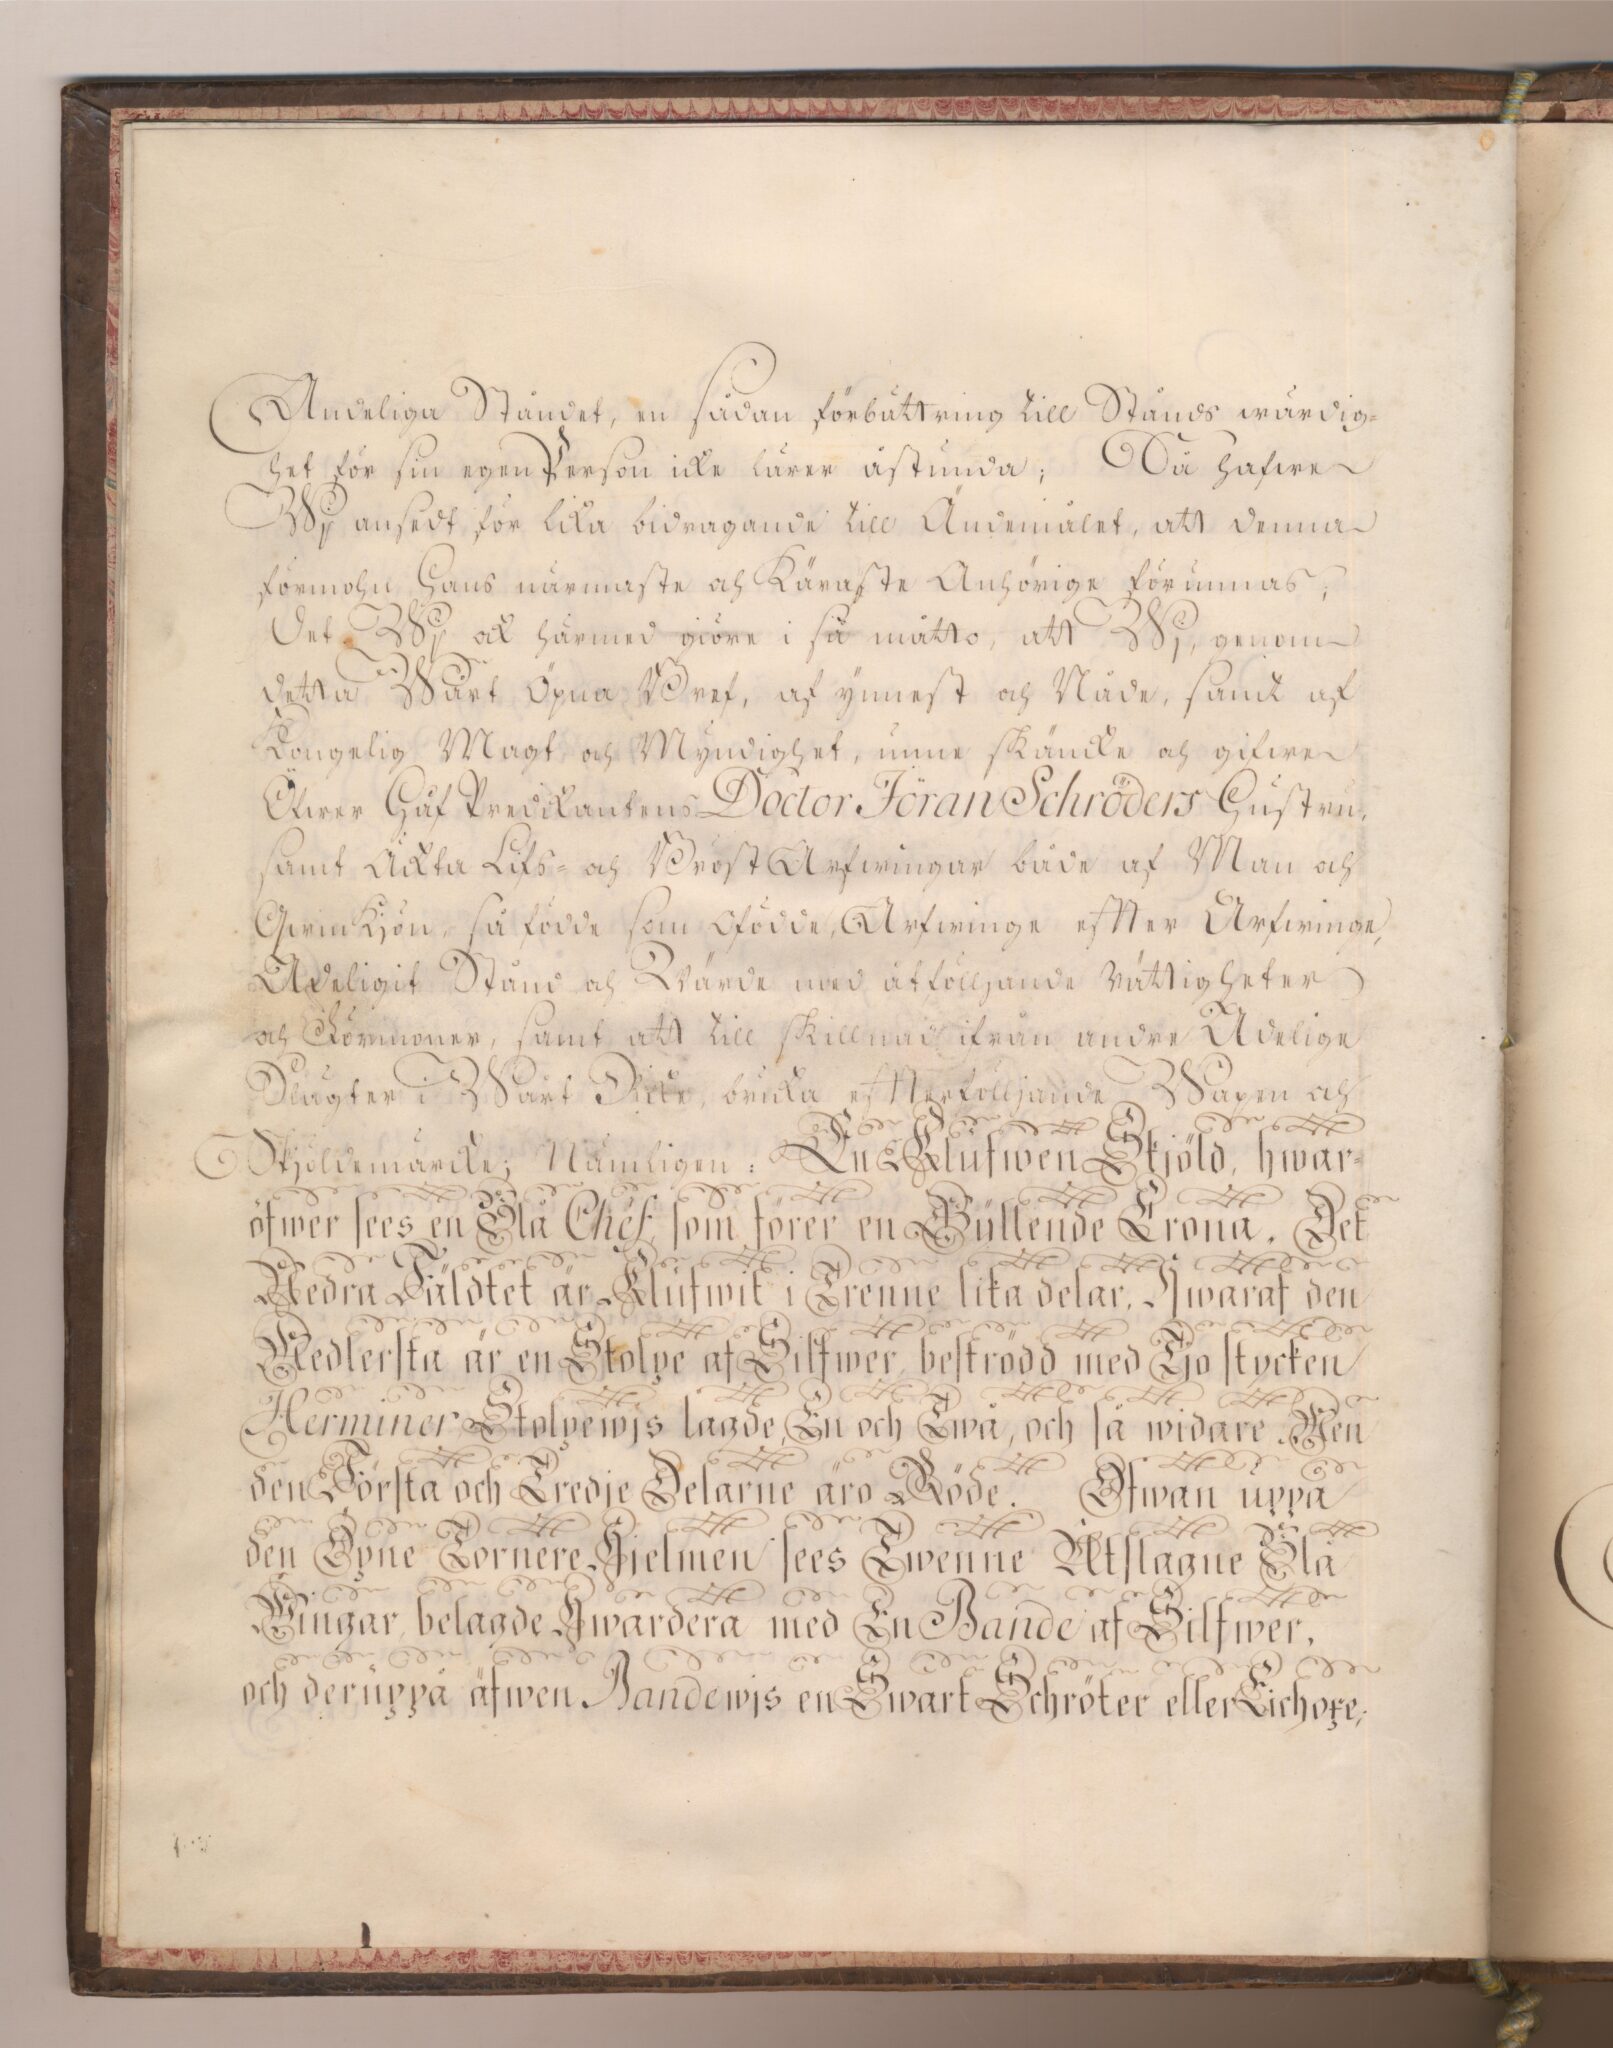 Andeliga Ståndet, en sådan förbättring till Stånds wärdig=
het för sin egen Person icke lärer åstunda; Så hafwe
Wij ansedt för lika bidragande till Ändemålet, att denna
förmohn Hans närmaste och Käraste Anhörige förunnas;
Det Wij ock härmed giöre i så måtto, att Wj, genom
detta Wårt Öpna Bref, af ynnest och Nåde, samt af
Kongelig Magt och Myndighet, unne skäncke och gifwe
Öfwer Håf Predikantens Doctor Jöran Schröders Hustru,
samt Äckta Lifs= och Bröst Arfwingar både af Man och
Qwinkjön, så födde som ofödde, Arfwinge effter Arfwinge,
Adeligit Stånd och Wärde med åtföljande rättigheter
och Förmoner, samt att till skillnad ifrån andre Adelige
Slägter i Wårt Rike, bruka effterföljande Wapen och
Skjöldemärcke; Nämligen: En Klufwen Skjöld, hwar=
öfwer sees en Blå Chef, som förer en Gyllende Crona. Det
Nedra Fäldtet är Klufwit i Trenne lika delar, Hwaraf den
Medlersta är en Stolpe af Silfwer, beströdd med Tjo stycken
Herminer Stolpewjs lagde, En och Twå, och så widare. Men
den Första och Tredje Delarne äro Röde. Ofwan uppå
den Öpne Tornere Hjelmen sees Twenne Utslagne Blå
Wingar, belagde Hwardera med En Bande af Silfwer,
och deruppå äfwen Bandewjs en Swart Schröter eller Eichoxe;